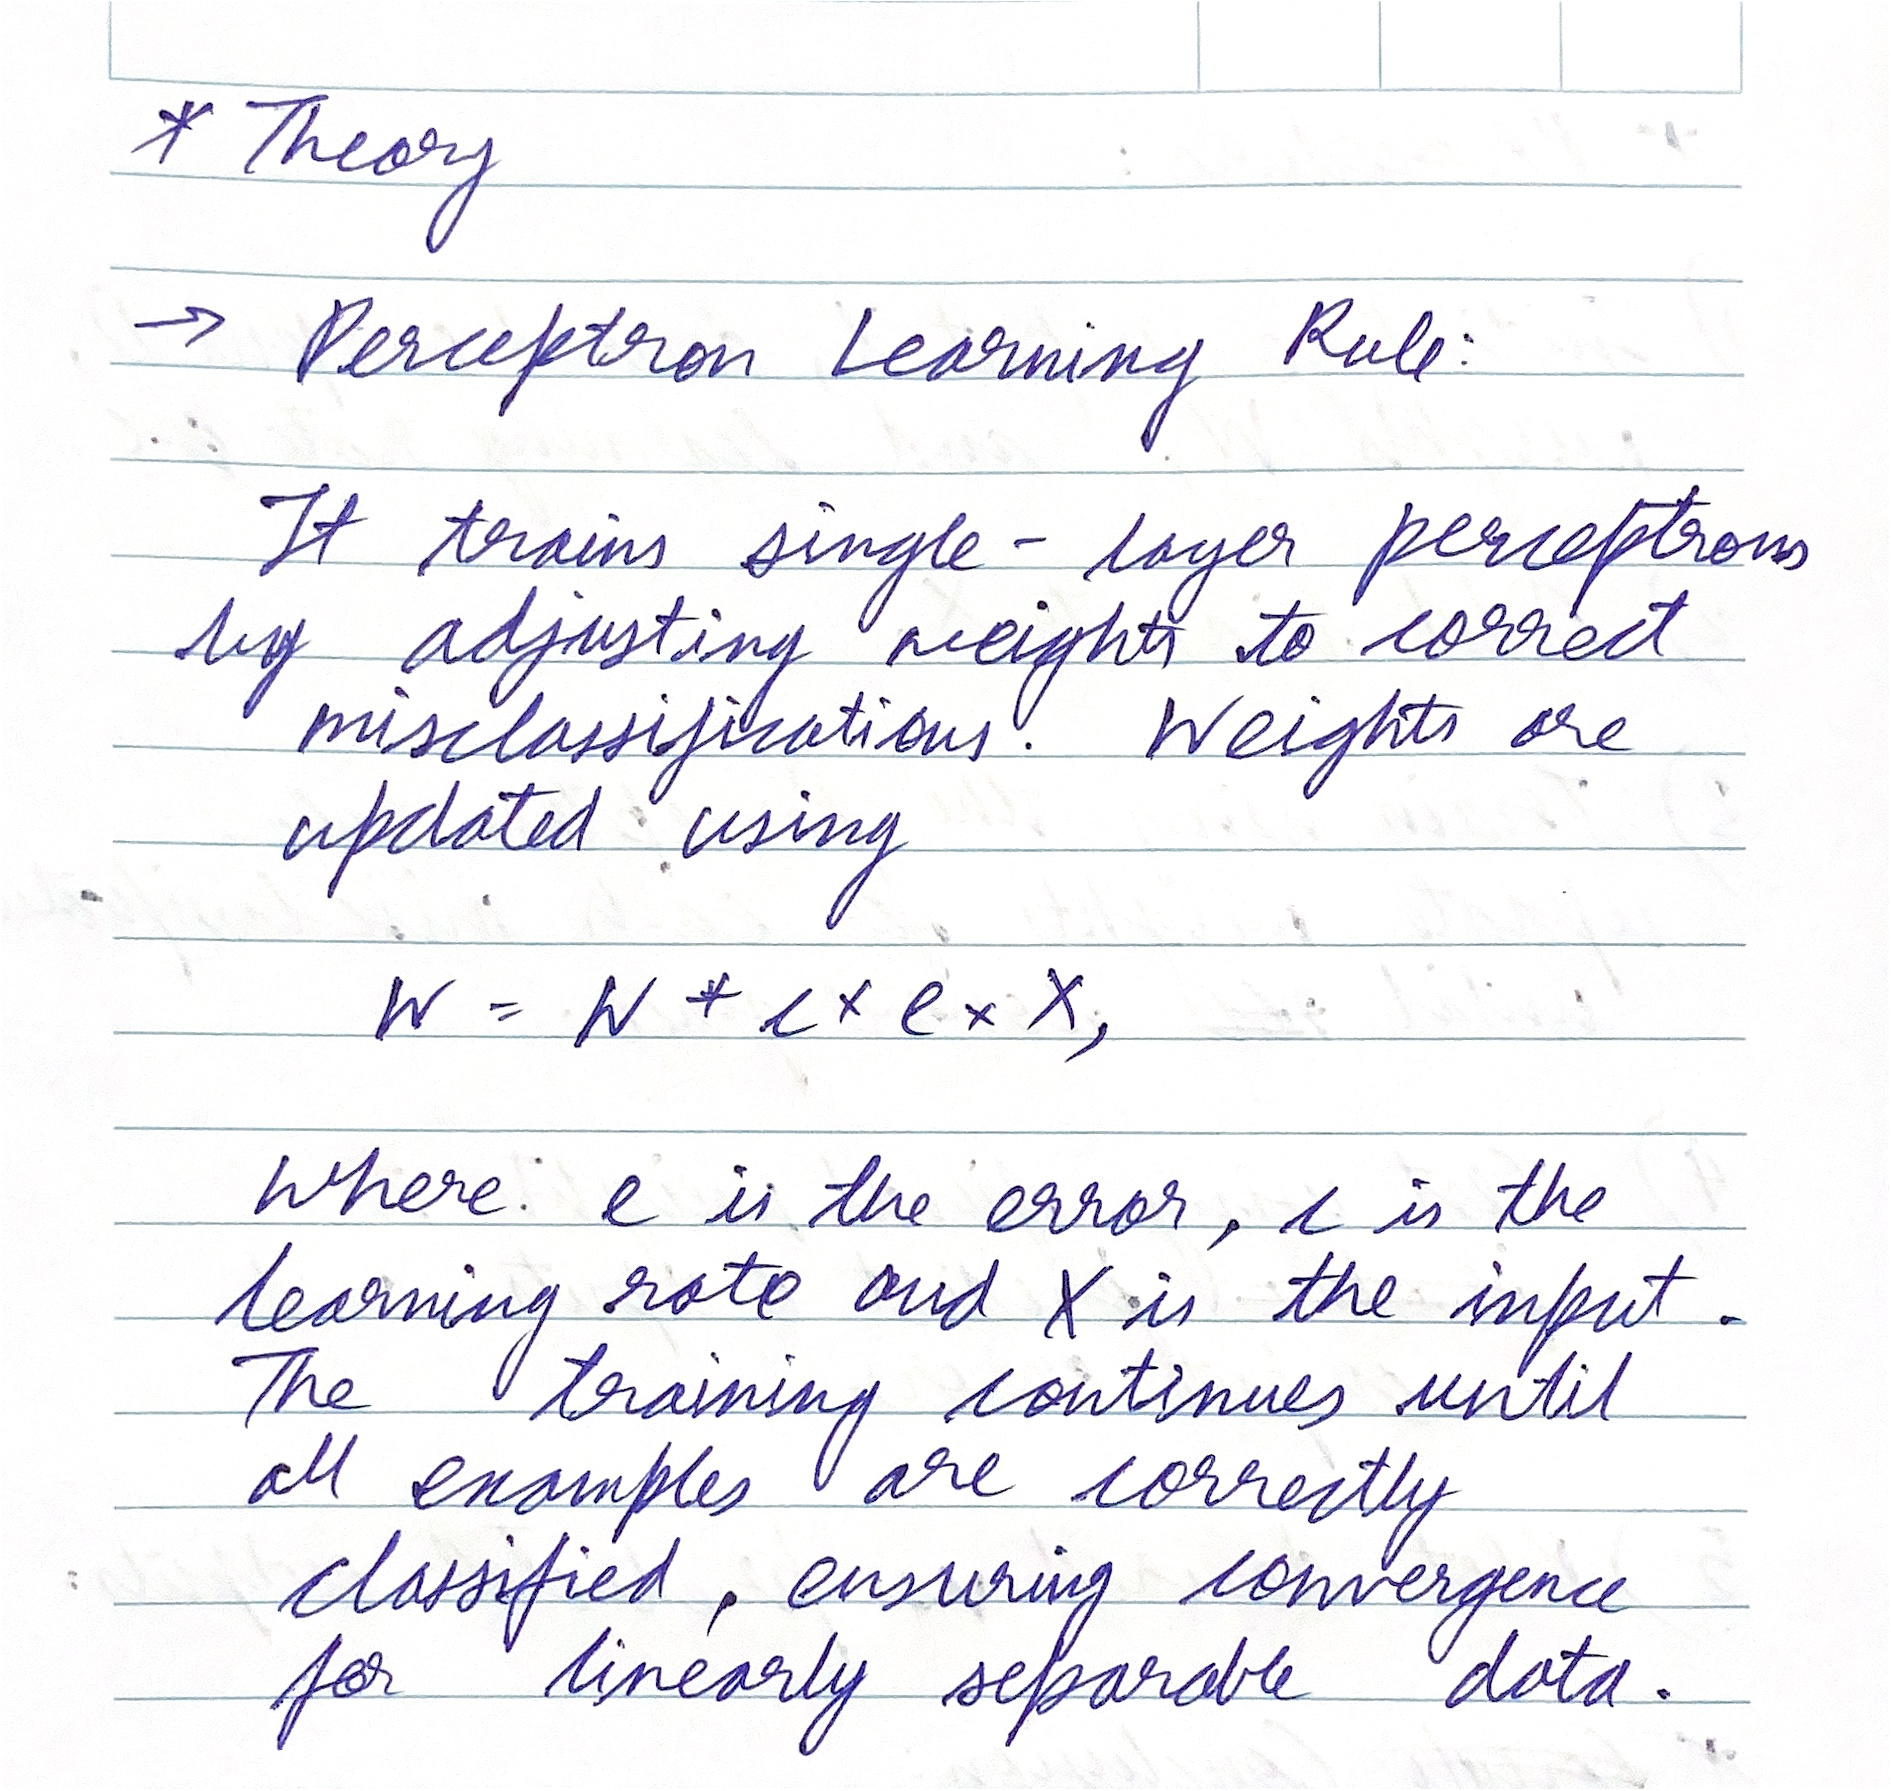 * Theory
→ Perceptron Learning Rule:
It trains single-layer perceptrons
by adjusting weights to correct
misclassifications. Weights are
updated using
W = W + c × e × X,
where: e is the error, c is the
learning rate and X is the input.
The training continues until
all examples are correctly
classified, ensuring convergence
for linearly separable data.